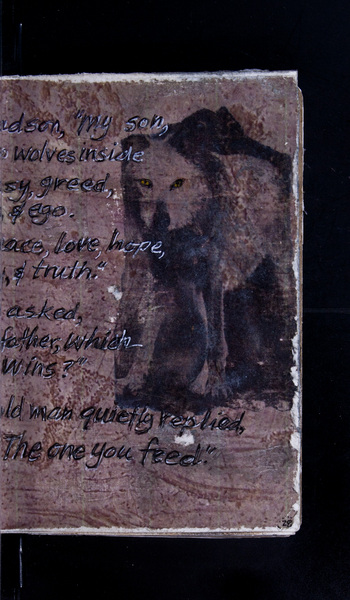 dson, "my son,
wolves inside
sy, greed,
& ego.
ace, love, hope,
, & truth."
asked,
father, which
wins?"
ld man quietly replied,
The one you feed."